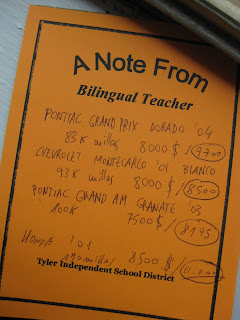 A Note From
Bilingual Teacher
PONTIAC GRAND PRIX DORADO '04
83K millas 8000 $ / 9700
CHEVROLET MONTECARLO '01 BLANCO
93K millas 8000 $ / 8500
PONTIAC GRAND AM GRANATE '03
100K 7500 $ / 8195
HONDA '01
millas 8500 $ / 11.000
Tyler Independent School District